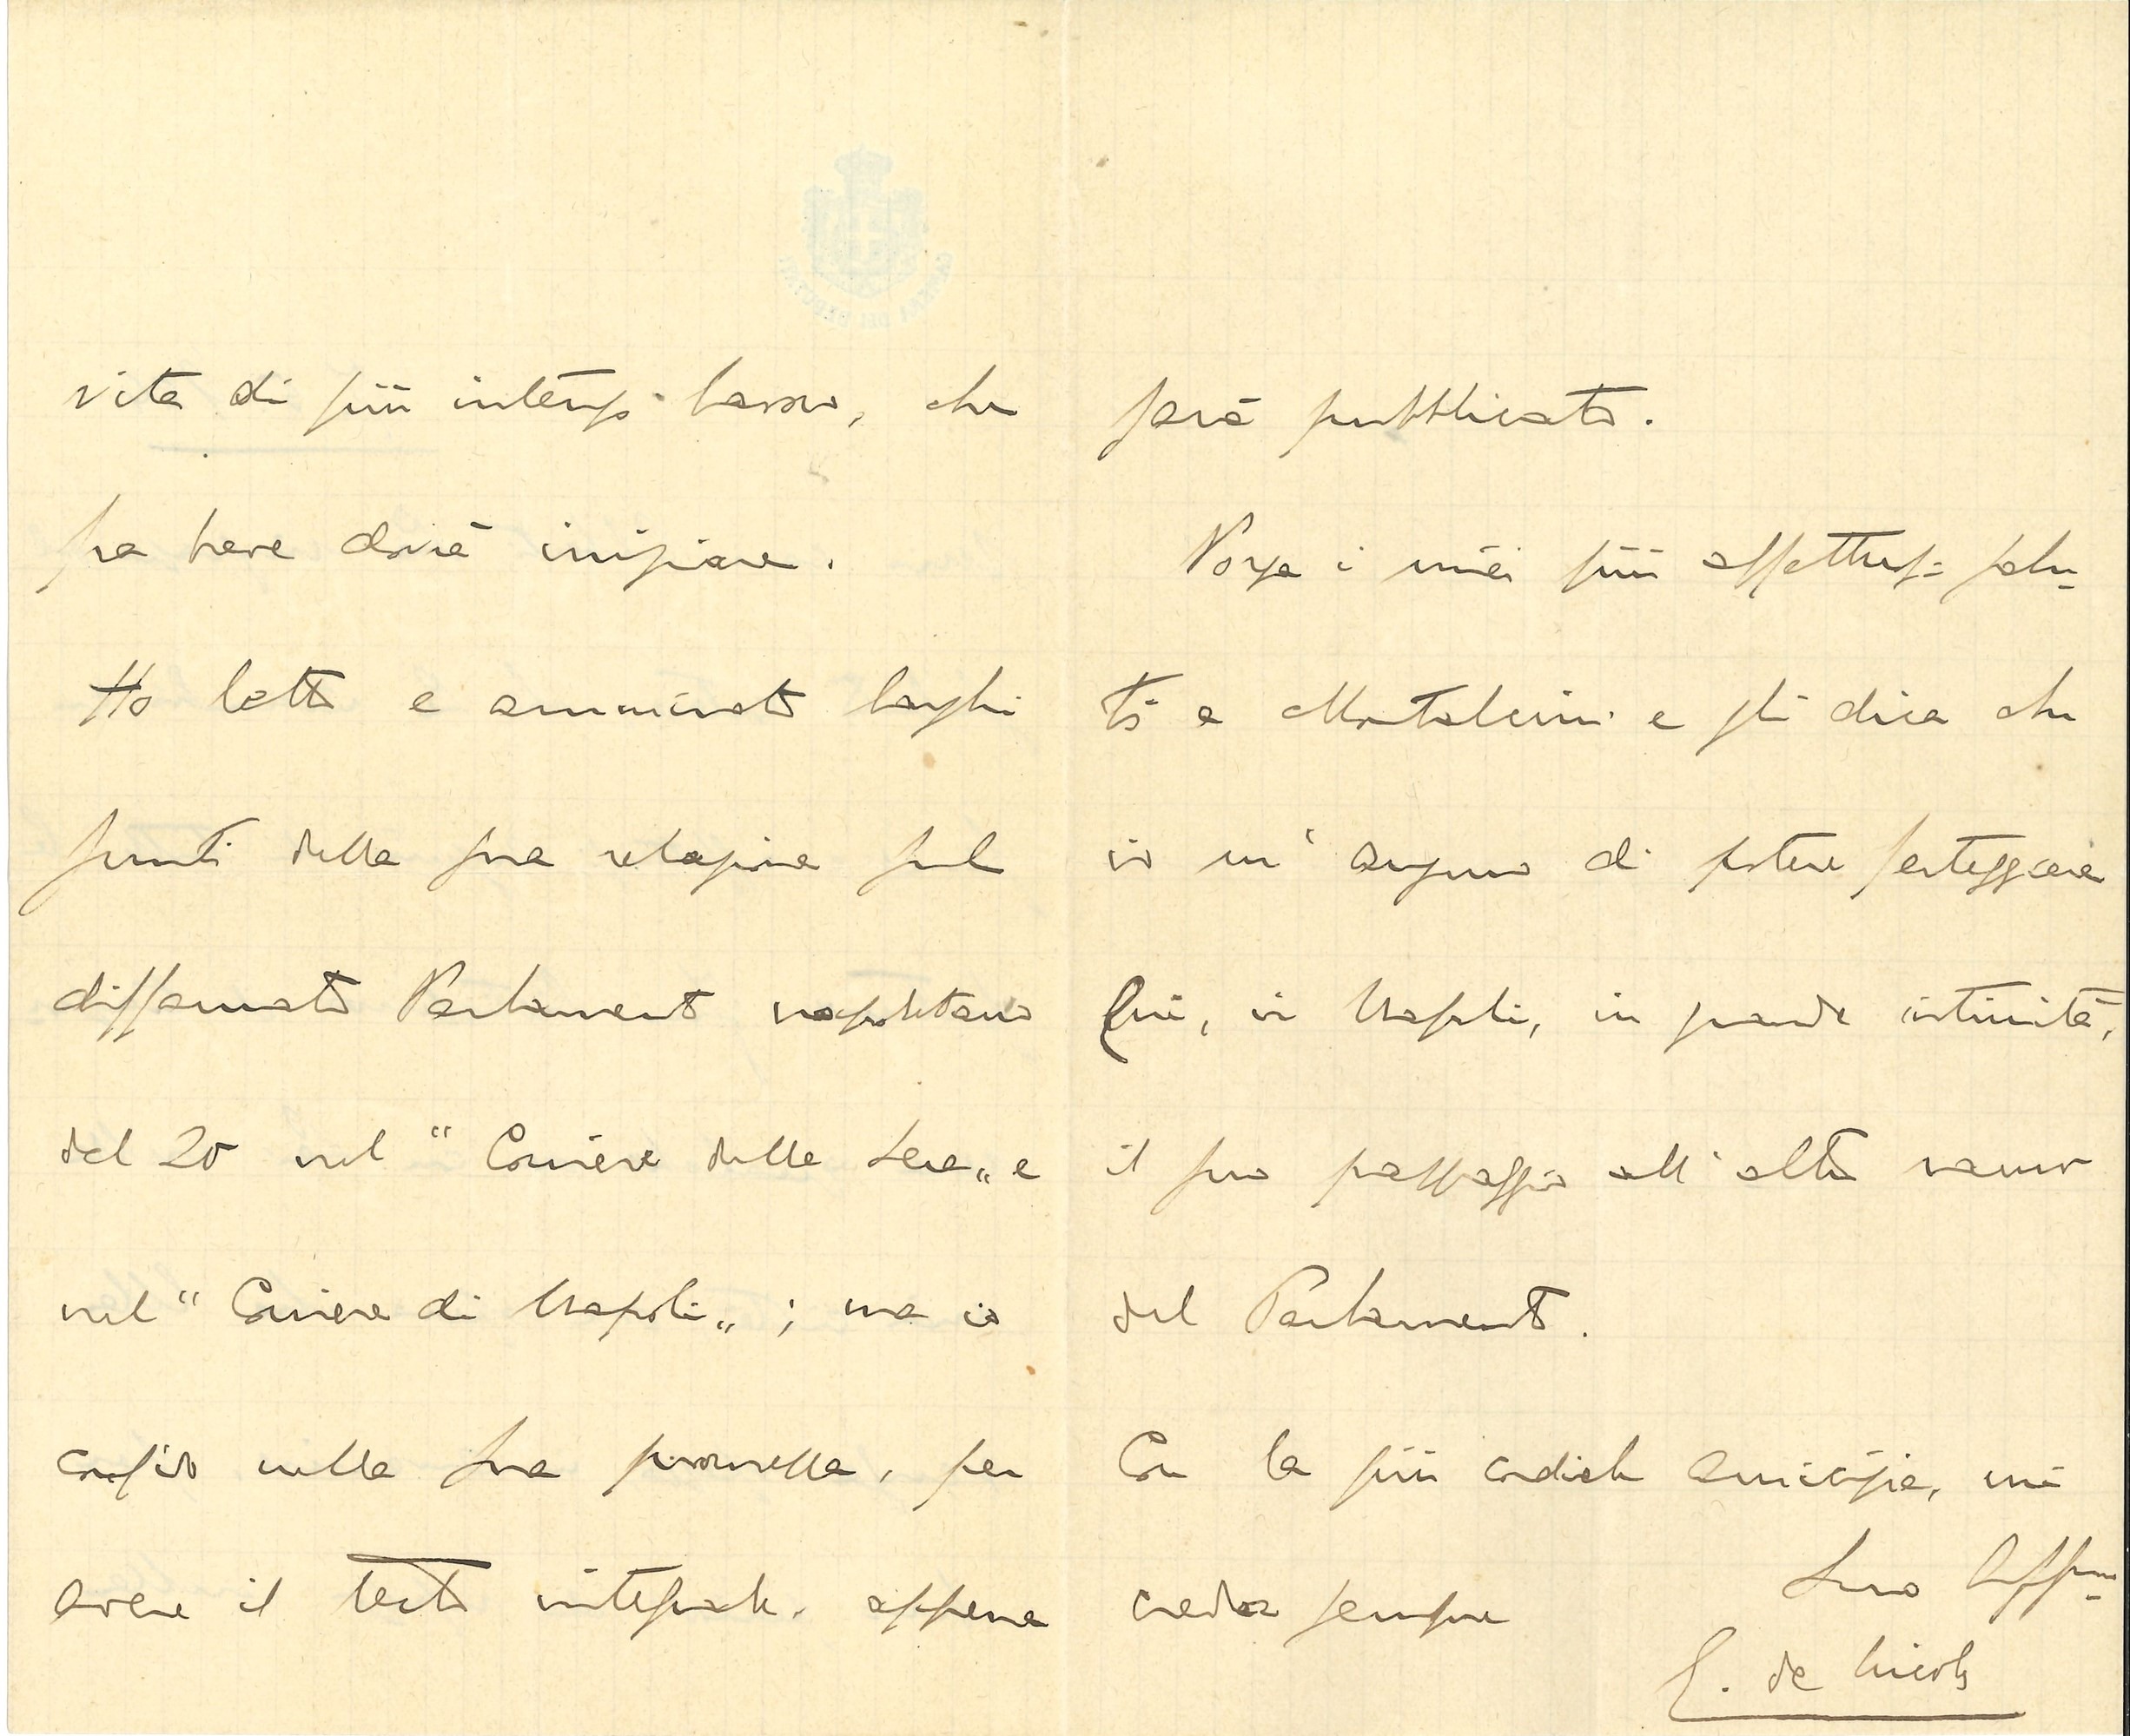 vita di più intenso lavoro, che
fra breve dovrà iniziare.
Ho letto e ammirato larghi
punti della sua relazione sul
diffamato Parlamento napoletano
del 20 nel "Corriere della Sera„ e
nel "Corriere di Napoli„; ma io
confido nella sua promessa, per
avere il testo integrale, appena
sarà pubblicato.
Porga i miei più affettuosi salu-
ti a Montalcini e gli dica che
io m'auguro di potere festeggiare
qui, in Napoli, in grande intimità,
il suo passaggio all'altro ramo
del Parlamento.
Con la più cordiale amicizia, mi
creda sempre
Suo Affmo
E. de Nicola
CAMERA DEI DEPUTATI